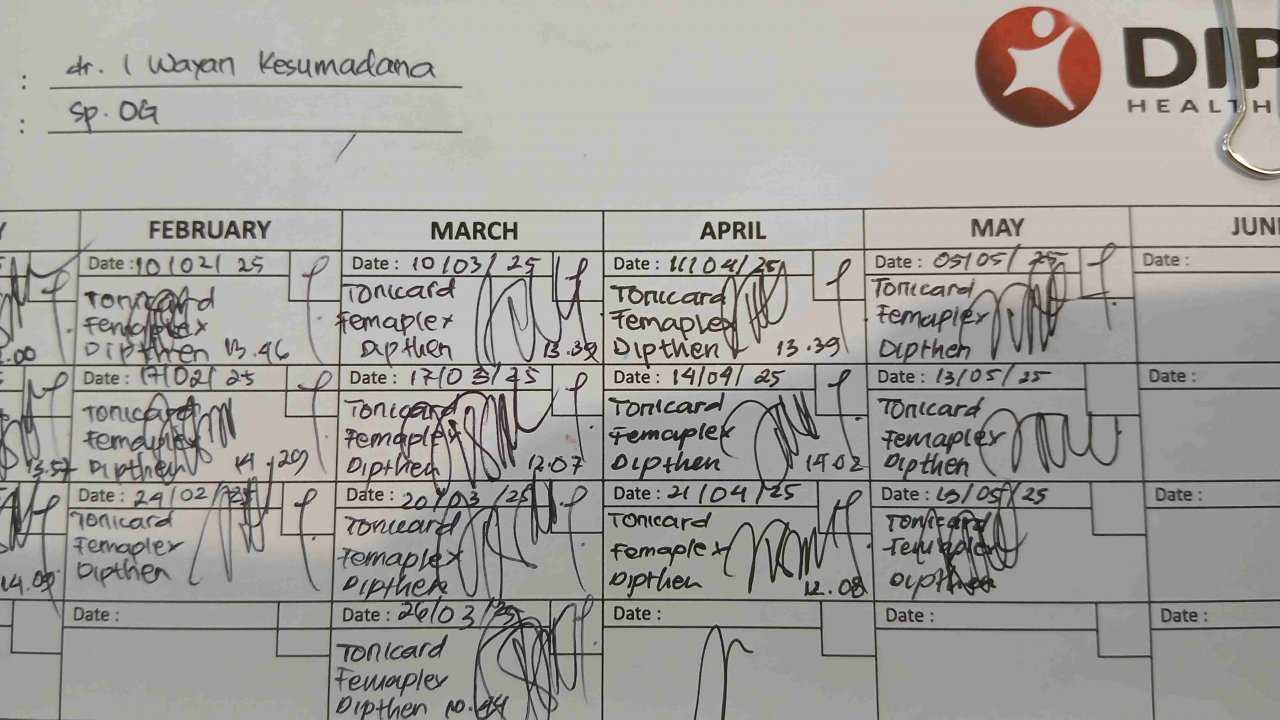 : dr. I Wayan Kesumadana
: Sp. OG
DIP
HEALTH
Y FEBRUARY MARCH APRIL MAY JUNE
Date : 10/02/25 Date : 10/03/25 Date : 11/04/25 Date : 05/05/25 Date :
Tonicard Tonicard Tonicard Tonicard
Femaplex Femaplex Femaplex Femaplex
.00 Dipthen 13.46 Dipthen 13.39 Dipthen 13.39 Dipthen
Date : 17/02/25 Date : 17/03/25 Date : 14/04/25 Date : 13/05/25 Date :
Tonicard Tonicard Tonicard Tonicard
Femaplex Femaplex Femaplex Femaplex
13.57 Dipthen 14.29 Dipthen 12.07 Dipthen 14.02 Dipthen
Date : 24/02/25 Date : 20/03/25 Date : 21/04/25 Date : 19/05/25 Date :
Tonicard Tonicard Tonicard Tonicard
Femaplex Femaplex Femaplex Femaplex
14.09 Dipthen Dipthen Dipthen 12.08 Dipthen
Date : Date : 26/03/25 Date : Date : Date :
Tonicard
Femaplex
Dipthen 10.44